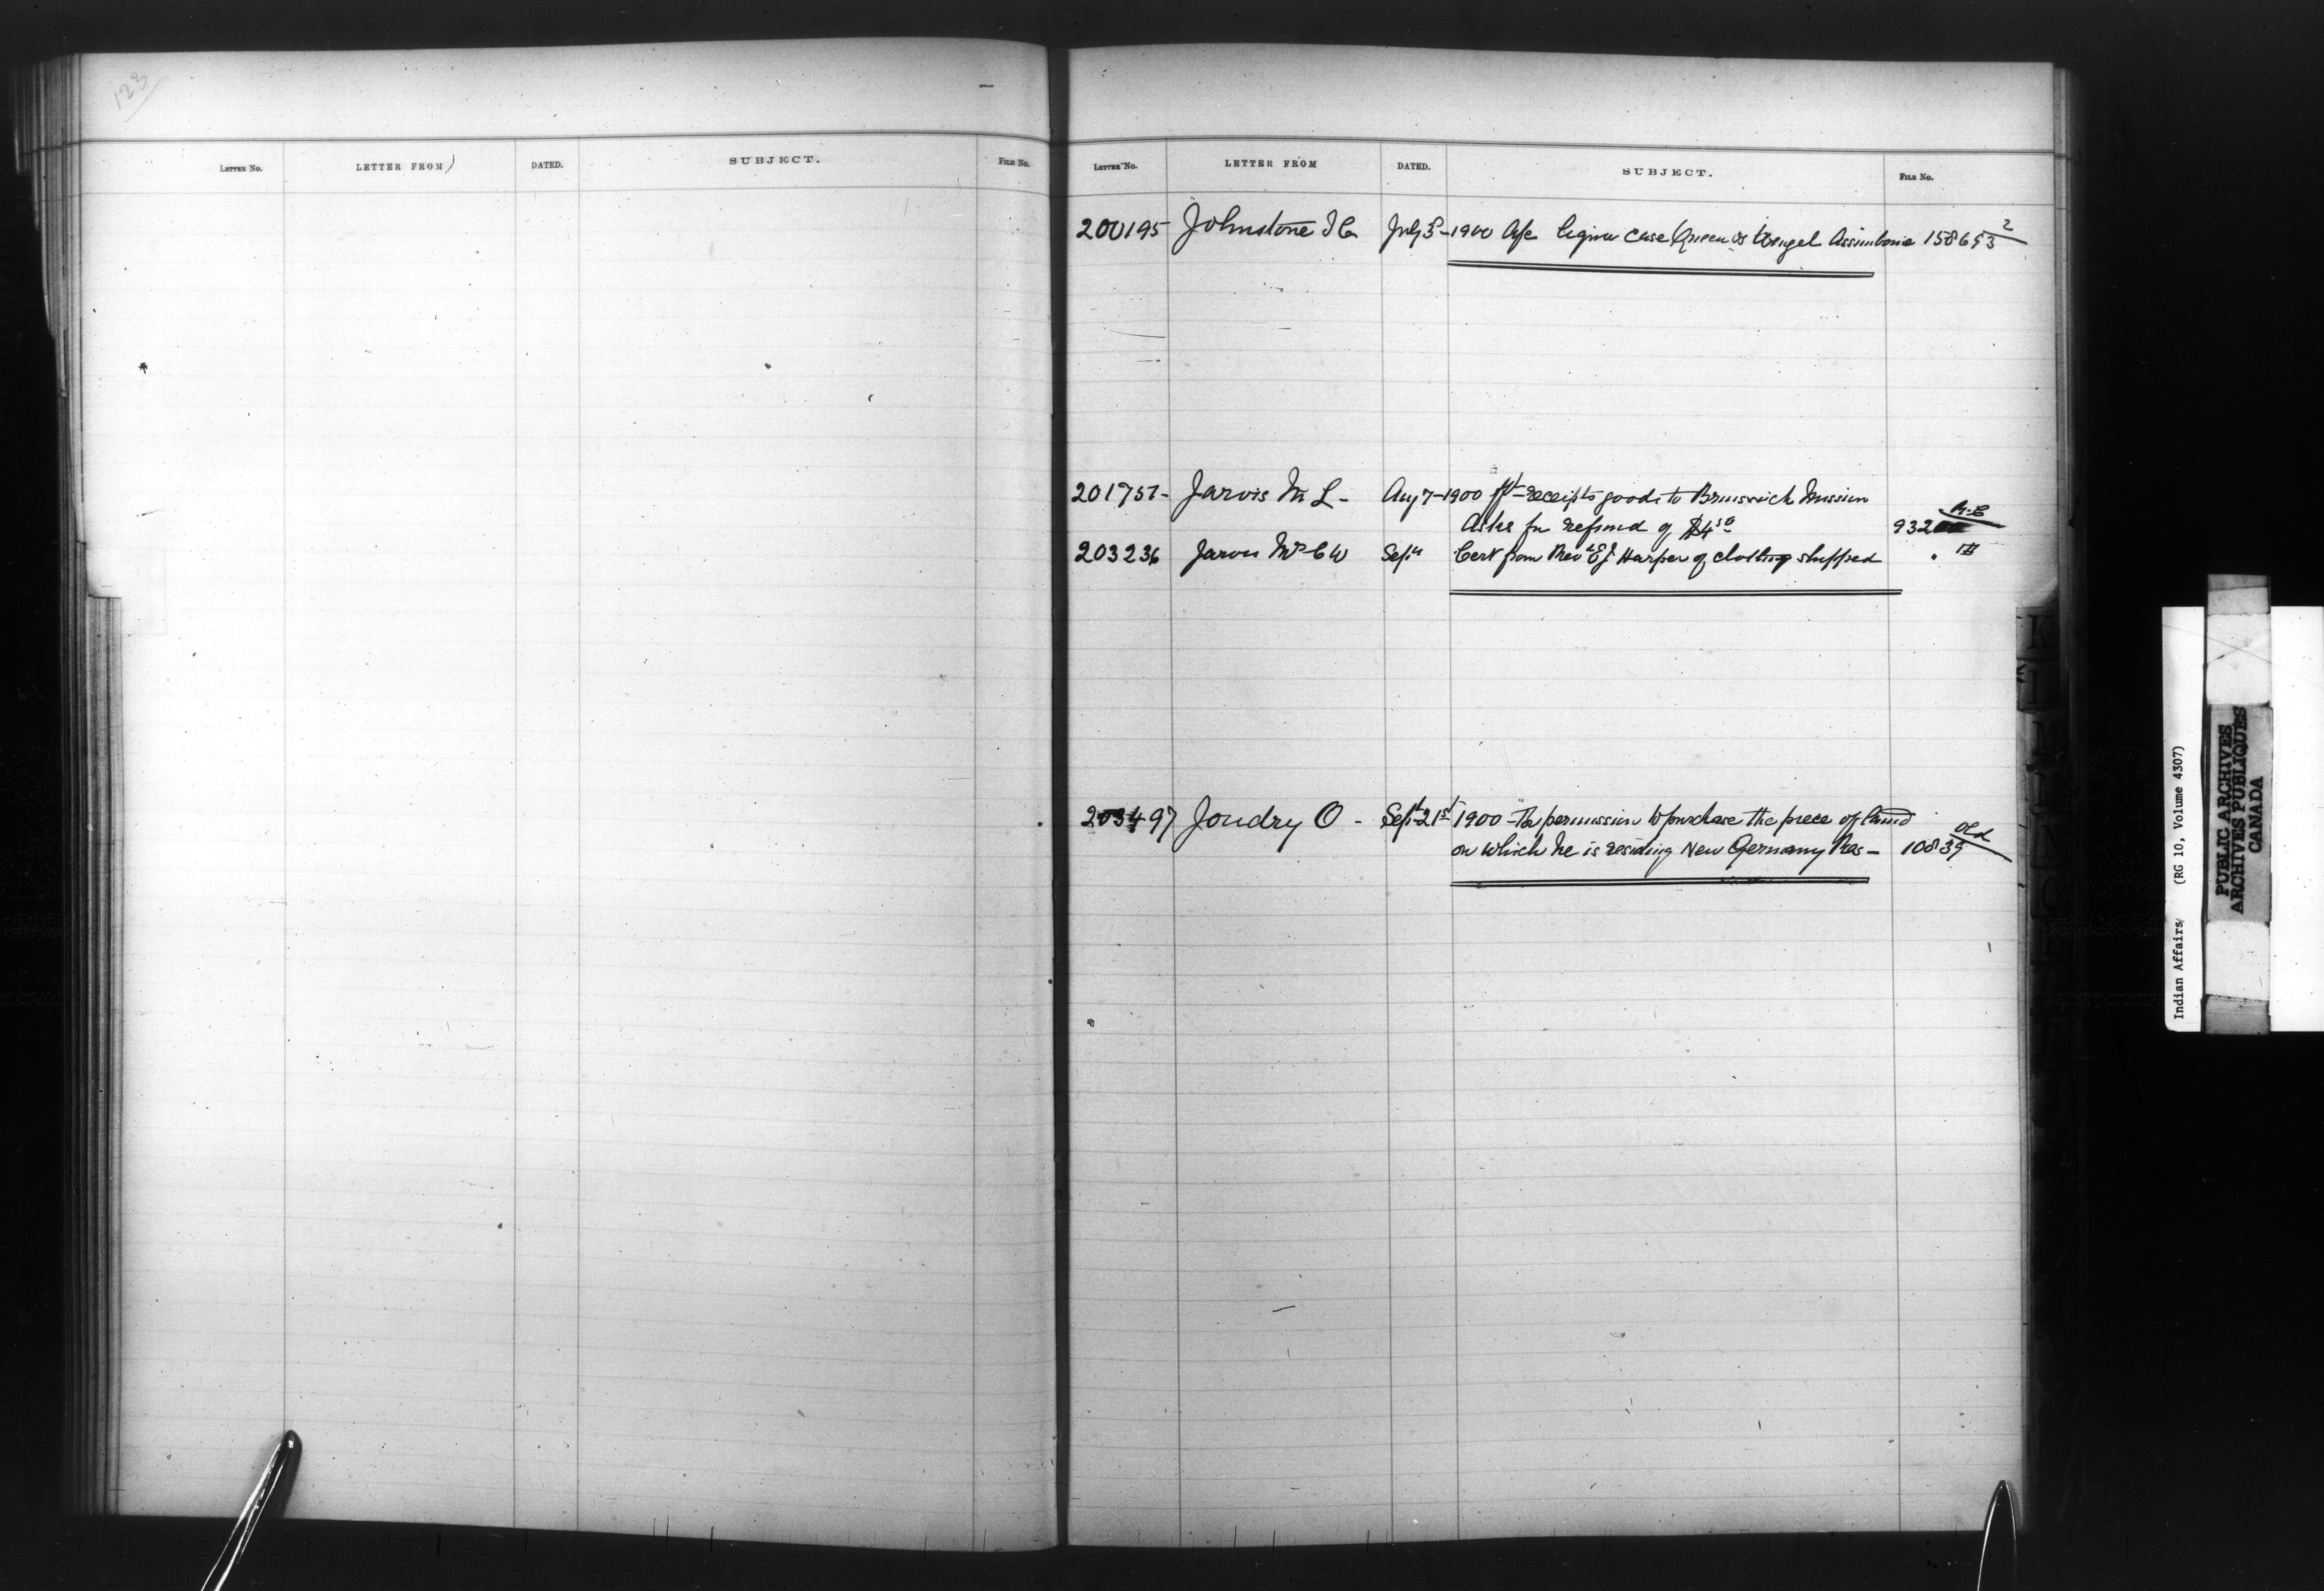 123
LETTER No. LETTER FROM DATED. SUBJECT. FILE No.
LETTER No. LETTER FROM DATED. SUBJECT. FILE No.
200195 Johnstone July 3 - 1900 case Queen vs Assiniboia 158653 2
201757 - Jarvis M L - Aug 7 - 1900 receipts goods to Brunswick Mission
Asks for refund of $4 50 932
203236 Jarvis Mrs C W Sept Cert from Revd E J Harper of clothing shipped
203497 Joudry O - Sept 21st 1900 - For permission to purchase the piece of land
on which he is residing New Germany Res - 10839 Old
K
L
Indian Affairs (RG 10, Volume 4307)
PUBLIC ARCHIVES
ARCHIVES PUBLIQUES
CANADA